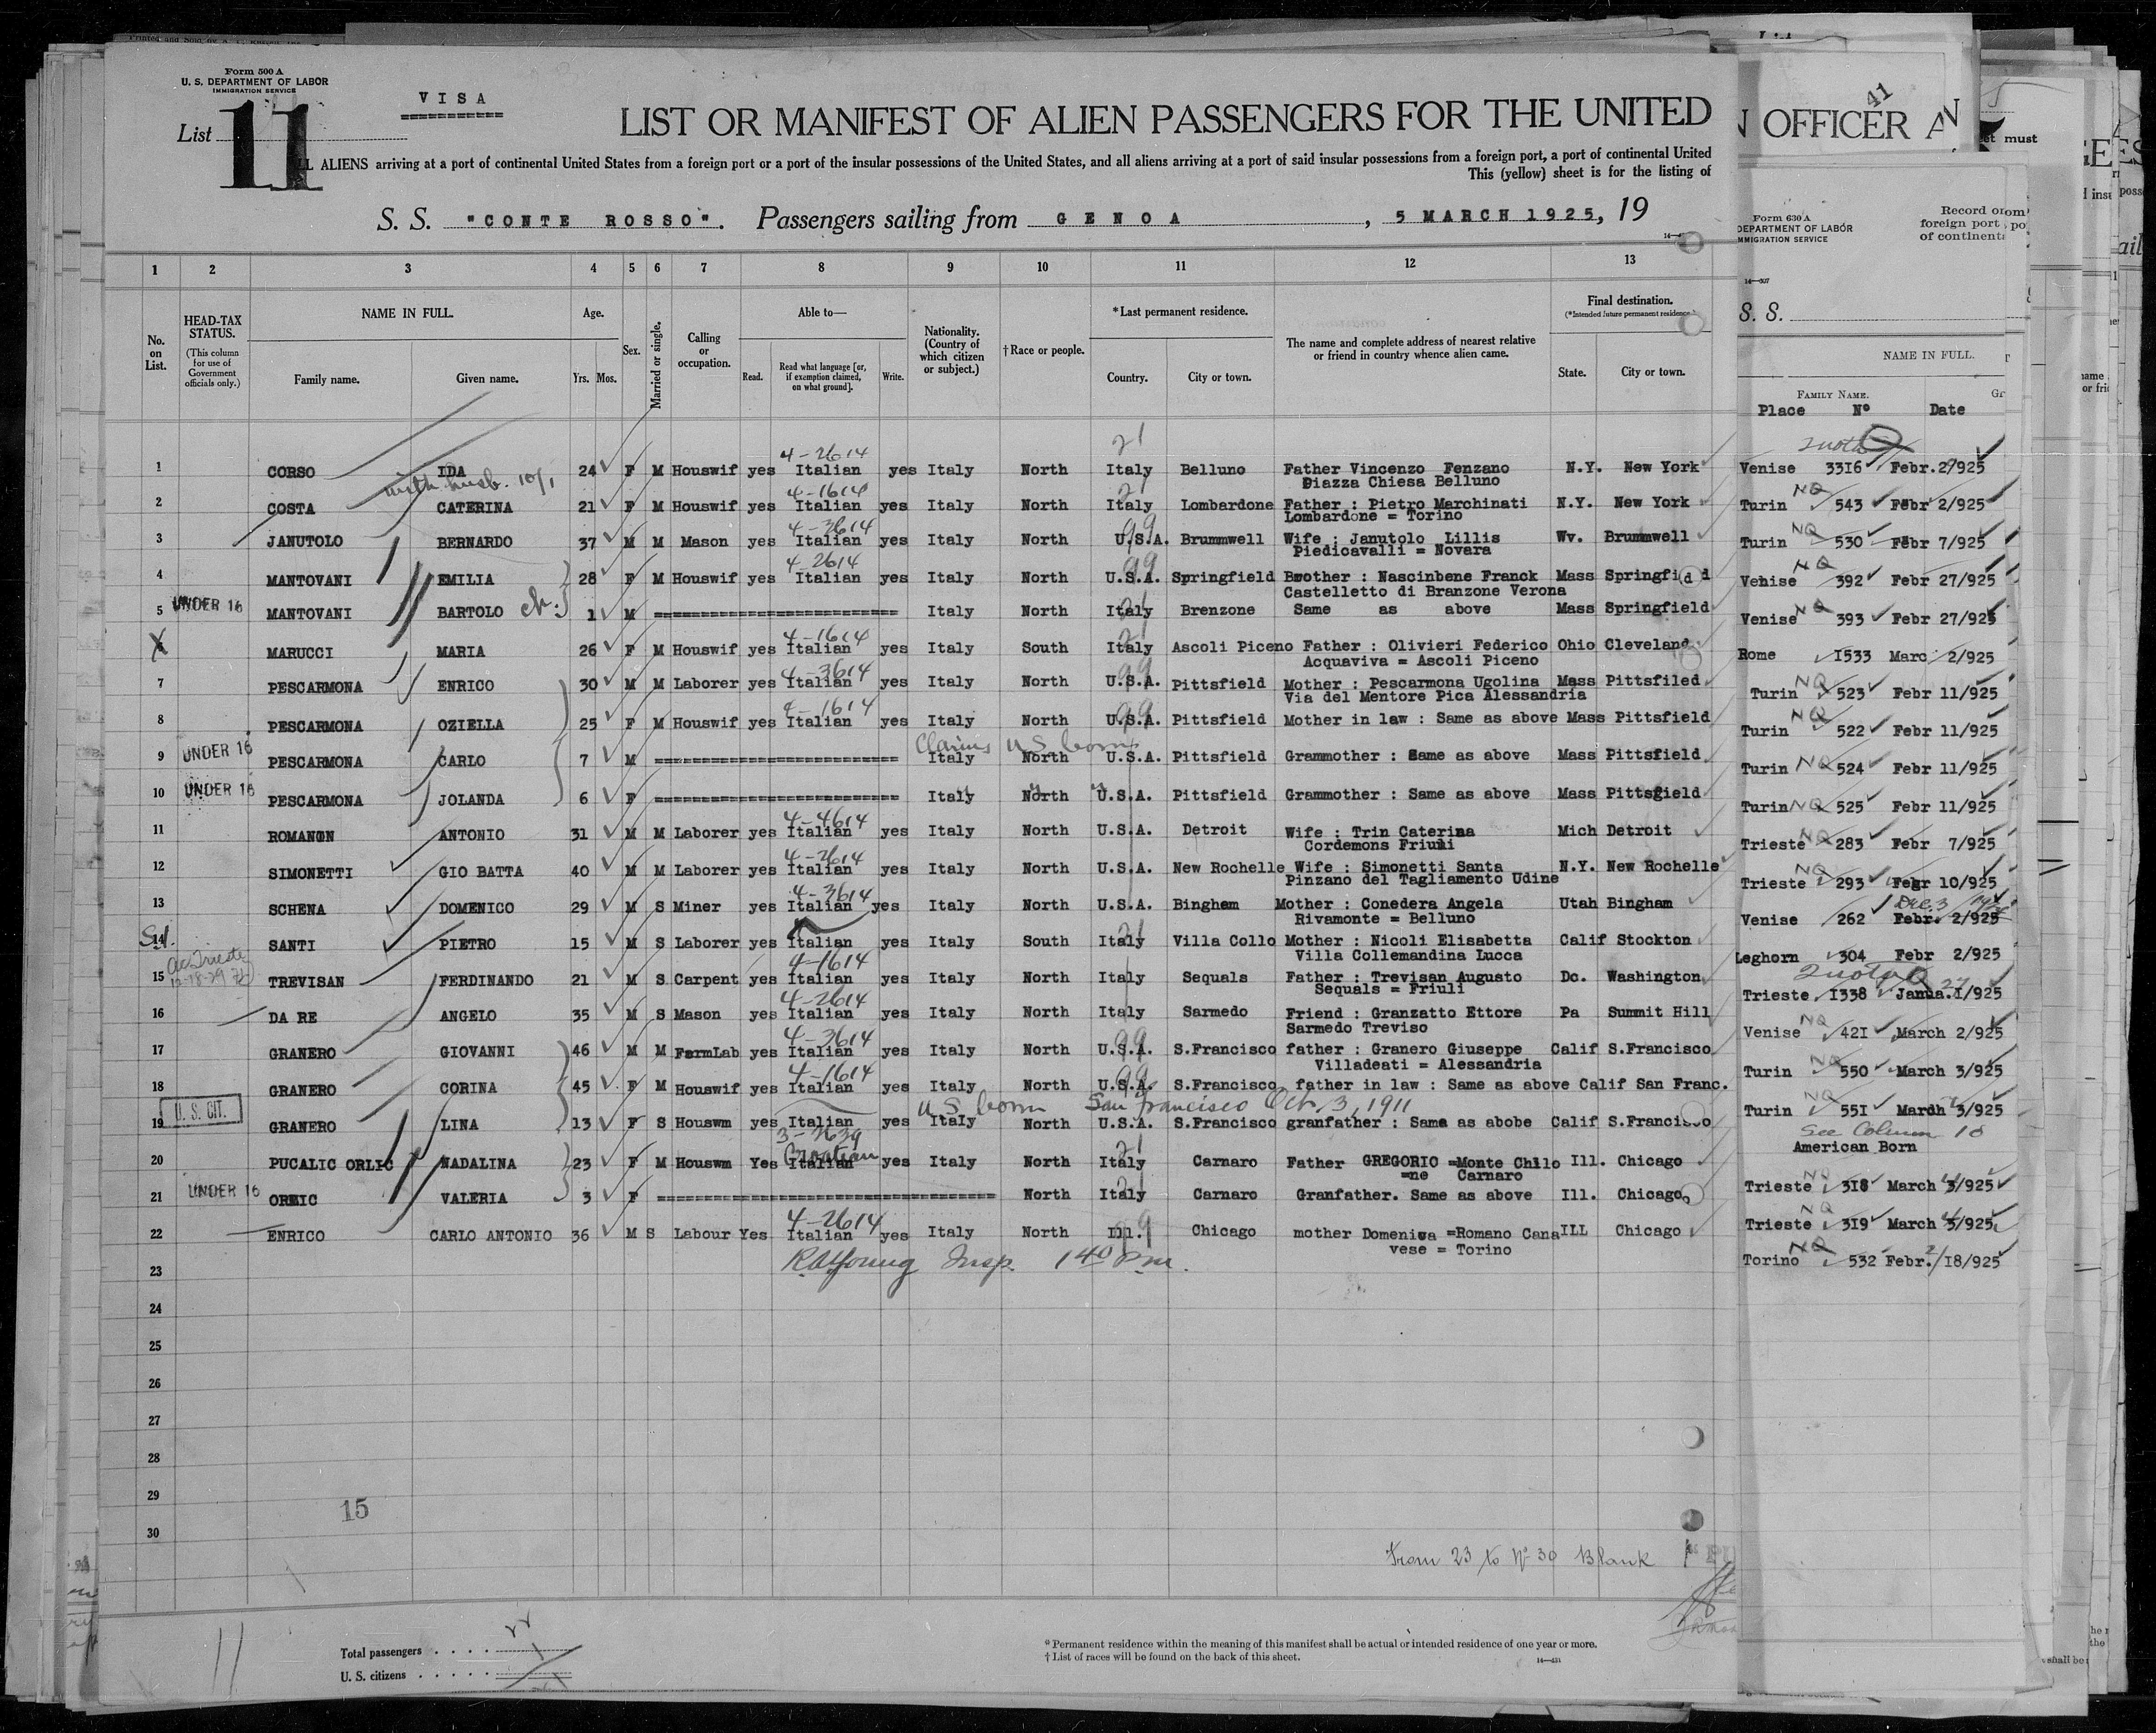 Form 500 A
U. S. DEPARTMENT OF LABOR
IMMIGRATION SERVICE
VISA
List 11
LIST OR MANIFEST OF ALIEN PASSENGERS FOR THE UNITED
ALL ALIENS arriving at a port of continental United States from a foreign port or a port of the insular possessions of the United States, and all aliens arriving at a port of said insular possessions from a foreign port, a port of continental United
This (yellow) sheet is for the listing of
S. S. "CONTE ROSSO". Passengers sailing from GENOA, 5 MARCH 1925, 19
N OFFICER AN
41
Form 630 A
DEPARTMENT OF LABOR
IMMIGRATION SERVICE
Record o
foreign port
of continent
14—307
S. S.
NAME IN FULL.
FAMILY NAME.
Place Nº Date
1 2 3 4 5 6 7 8 9 10 11 12 13
No. on List.
HEAD-TAX STATUS.
(This column for use of Government officials only.)
NAME IN FULL.
Family name. Given name.
Age.
Yrs. Mos.
Sex.
Married or single.
Calling or occupation.
Able to—
Read.
Read what language [or, if exemption claimed, on what ground].
Write.
Nationality. (Country of which citizen or subject.)
†Race or people.
*Last permanent residence.
Country. City or town.
The name and complete address of nearest relative or friend in country whence alien came.
Final destination.
(*Intended future permanent residence.)
State. City or town.
4-2614 21
1 CORSO IDA 24 F M Houswif yes Italian yes Italy North Italy Belluno Father Vincenzo Fenzano N.Y. New York Venise 3316 Febr. 2/925
Piazza Chiesa Belluno
with husb. 10/1 4-1614 21 NQ
2 COSTA CATERINA 21 F M Houswif yes Italian yes Italy North Italy Lombardone Father : Pietro Marchinati N.Y. New York Turin 543 Febr 2/925
Lombardone = Torino
4-3614 99 NQ
3 JANUTOLO BERNARDO 37 M M Mason yes Italian yes Italy North U.S.A. Brummwell Wife : Janutolo Lillis Wv. Brummwell Turin 530 Febr 7/925
Piedicavalli = Novara
4-2614 99 NQ
4 MANTOVANI EMILIA 28 F M Houswif yes Italian yes Italy North U.S.A. Springfield Brother : Nascinbene Franck Mass Springfi d d Venise 392 Febr 27/925
Castelletto di Branzone Verona
5 UNDER 16 MANTOVANI BARTOLO ch: 1 M Italy North Italy Brenzone Same as above Mass Springfield Venise NQ 393 Febr 27/925
4-1614 21
X MARUCCI MARIA 26 F M Houswif yes Italian yes Italy South Italy Ascoli Piceno Father : Olivieri Federico Ohio Cleveland Rome 1533 Marc 2/925
Acquaviva = Ascoli Piceno
4-3614 99 NQ
7 PESCARMONA ENRICO 30 M M Laborer yes Italian yes Italy North U.S.A. Pittsfield Mother : Pescarmona Ugolina Mass Pittsfiled Turin 523 Febr 11/925
Via del Mentore Pica Alessandria
4-1614 99 NQ
8 PESCARMONA OZIELLA 25 F M Houswif yes Italian yes Italy North U.S.A. Pittsfield Mother in law : Same as above Mass Pittsfield Turin 522 Febr 11/925
Claims U S born
9 UNDER 16 PESCARMONA CARLO 7 M Italy North U.S.A. Pittsfield Grammother : Same as above Mass Pittsfield Turin NQ 524 Febr 11/925
10 UNDER 16 PESCARMONA JOLANDA 6 F Italy North U.S.A. Pittsfield Grammother : Same as above Mass Pittsfield Turin NQ 525 Febr 11/925
4-4614
11 ROMANIN ANTONIO 31 M M Laborer yes Italian yes Italy North U.S.A. Detroit Wife : Trin Caterina Mich Detroit Trieste NQ 283 Febr 7/925
Cordemons Friuli
4-2614
12 SIMONETTI GIO BATTA 40 M M Laborer yes Italian yes Italy North U.S.A. New Rochelle Wife : Simonetti Santa N.Y. New Rochelle Trieste NQ 293 Febr 10/925
Pinzano del Tagliamento Udine
4-3614
13 SCHENA DOMENICO 29 M S Miner yes Italian yes Italy North U.S.A. Bingham Mother : Conedera Angela Utah Bingham Venise 262 Febr. 2/925
Rivamonte = Belluno
14 SANTI PIETRO 15 M S Laborer yes Italian yes Italy South Italy Villa Collo Mother : Nicoli Elisabetta Calif Stockton Leghorn 304 Febr 2/925
Villa Collemandina Lucca
4-1614
15 TREVISAN FERDINANDO 21 M S Carpent yes Italian yes Italy North Italy Sequals Father : Trevisan Augusto Dc. Washington Trieste 1338 Janua. 1/925
Sequals = Friuli
4-2614
16 DA RE ANGELO 35 M S Mason yes Italian yes Italy North Italy Sarmedo Friend : Granzatto Ettore Pa Summit Hill Venise NQ 421 March 2/925
Sarmedo Treviso
4-3614 99 NQ
17 GRANERO GIOVANNI 46 M M FarmLab yes Italian yes Italy North U.S.A. S.Francisco father : Granero Giuseppe Calif S.Francisco Turin 550 March 3/925
Villadeati = Alessandria
4-1614 99 NQ
18 GRANERO CORINA 45 F M Houswif yes Italian yes Italy North U.S.A. S.Francisco father in law : Same as above Calif San Franc. Turin 551 March 3/925
U. S. CIT. U S born San Francisco Oct. 3, 1911
19 GRANERO LINA 13 F S Houswm yes Italian yes Italy North U.S.A. S.Francisco granfather : Same as abobe Calif S.Francisco See Column 18
American Born
3-2639 Croatian 21
20 PUCALIC ORLIC NADALINA 23 F M Houswm Yes Italian yes Italy North Italy Carnaro Father GREGORIO =Monte Chilo Ill. Chicago Trieste NQ 318 March 3/925
=ne Carnaro
21 UNDER 16 ORLIC VALERIA 3 F North Italy Carnaro Granfather. Same as above Ill. Chicago Trieste NQ 319 March 3/925
4-2614 99
22 ENRICO CARLO ANTONIO 36 M S Labour Yes Italian yes Italy North Ill. Chicago mother Domenica =Romano Cana ILL Chicago Torino NQ 532 Febr. 18/925
vese = Torino
23 Insp. 1 40 P.m.
24
25
26
27
28
29
15
30
From 23 to Nº 30 Blank
11
Total passengers . . . . .
U. S. citizens . . . . .
* Permanent residence within the meaning of this manifest shall be actual or intended residence of one year or more.
† List of races will be found on the back of this sheet.
14—421